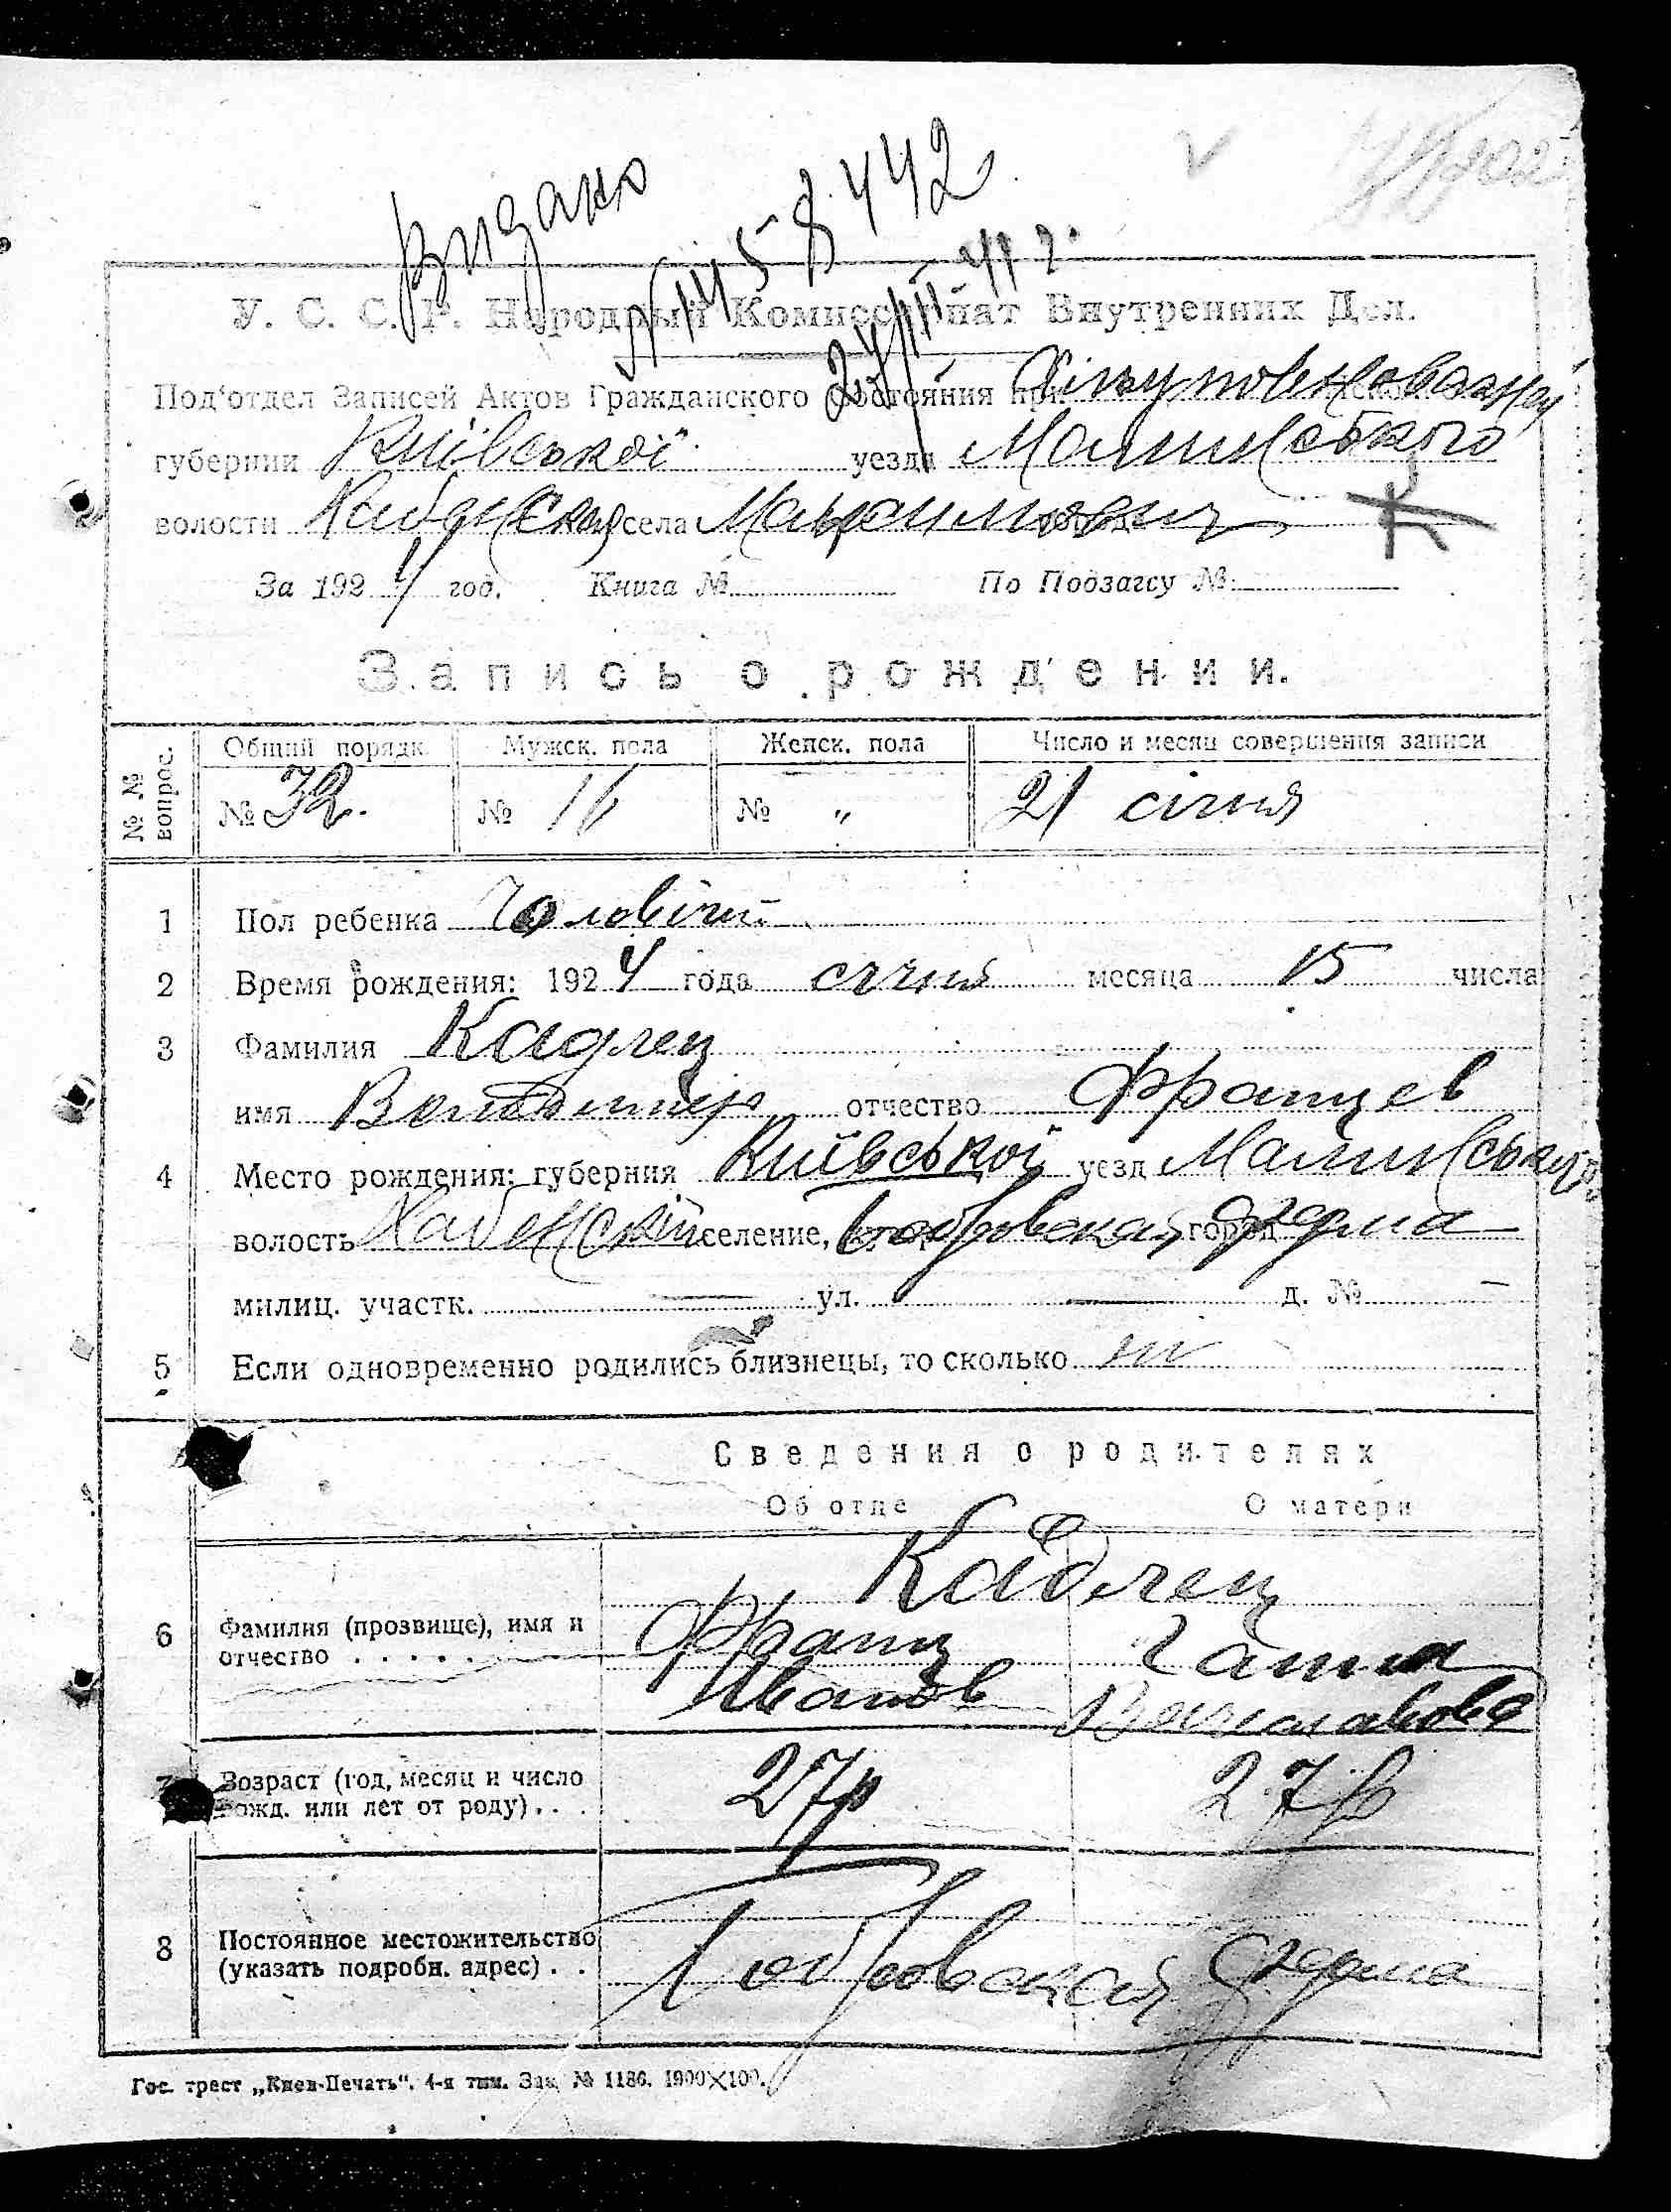 Видано
№ 458442
У. С. С. Р. Народный Комиссариат Внутренних Дел.
Под'отдел Записей Актов Гражданского Состояния при
губернии Київської уезда Малинського
волости Хабенская села Максимович
К
За 1924 год. Книга № По Подзагсу №
Запись о рождении.
№ № вопрос. Общий порядк. Мужск. пола Женск. пола Число и месяц совершения записи
№ 32. № 16 № „ 21 січня
1 Пол ребенка Чоловічий
2 Время рождения: 1924 года січня месяца 15 числа
3 Фамилия Кадлец
имя Володимир отчество Францев
4 Место рождения: губерния Київської уезд Малинського
волость Хабенский селение, Бобровская город
милиц. участк. — ул. — д. № —
5 Если одновременно родились близнецы, то сколько ні
Сведения о родителях
Об отце О матери
Кадлец
6 Фамилия (прозвище), имя и
отчество . . . . .
Франц
Иванов Вячеславова
7 Возраст (год, месяц и число
рожд. или лет от роду) . . .
27р 27р
8 Постоянное местожительство
(указать подробн. адрес) . .
Бобровская
Гос. трест „Киев-Печать“. 4-я тип. Зак. № 1186. 1900×100.